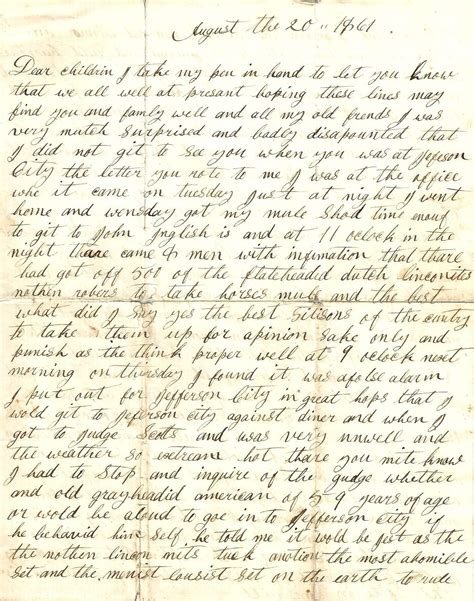 August the 20 " 1861
Dear children I take my pen in hand to let you know
that we all well at presant hoping these lines may
find you and famly well and all my old frends I was
very mutch surprised and badly disapounted that
I did not git to see you when you was at Jeferson
City the letter you rote to me I was at the office
whe it came on tuesday Just at night I went
home and wensday got my mule shod time enouf
to git to John Inglish is and at 11 oclock in the
night thare came 4 men with infumation that thare
had got off 500 of the flateheaded dutch linconits
nothen robers to take horses muls and the best
what did I say yes the best sitisons of the cuntry
to take them up for apinion sake only and
punish as the think proper well at 9 oclock next
morning on thursday I found it was a folse alarm
I put out for Jefferson City in great hops that I
wold git to Jeferson city against diner and when I
got to Judge Scotts and was very unwell and
the weather so extream hot thare you mite know
I had to stop and inquire of the gudge whether
and old grayheadid american of 59 years of age
or would be aloud to goe in to Jefferson City if
he behavid him self he told me it wold be just as the
the nothen lincon nits tuck anotion the most abomible
set and the menist lousist set on the earth to rule